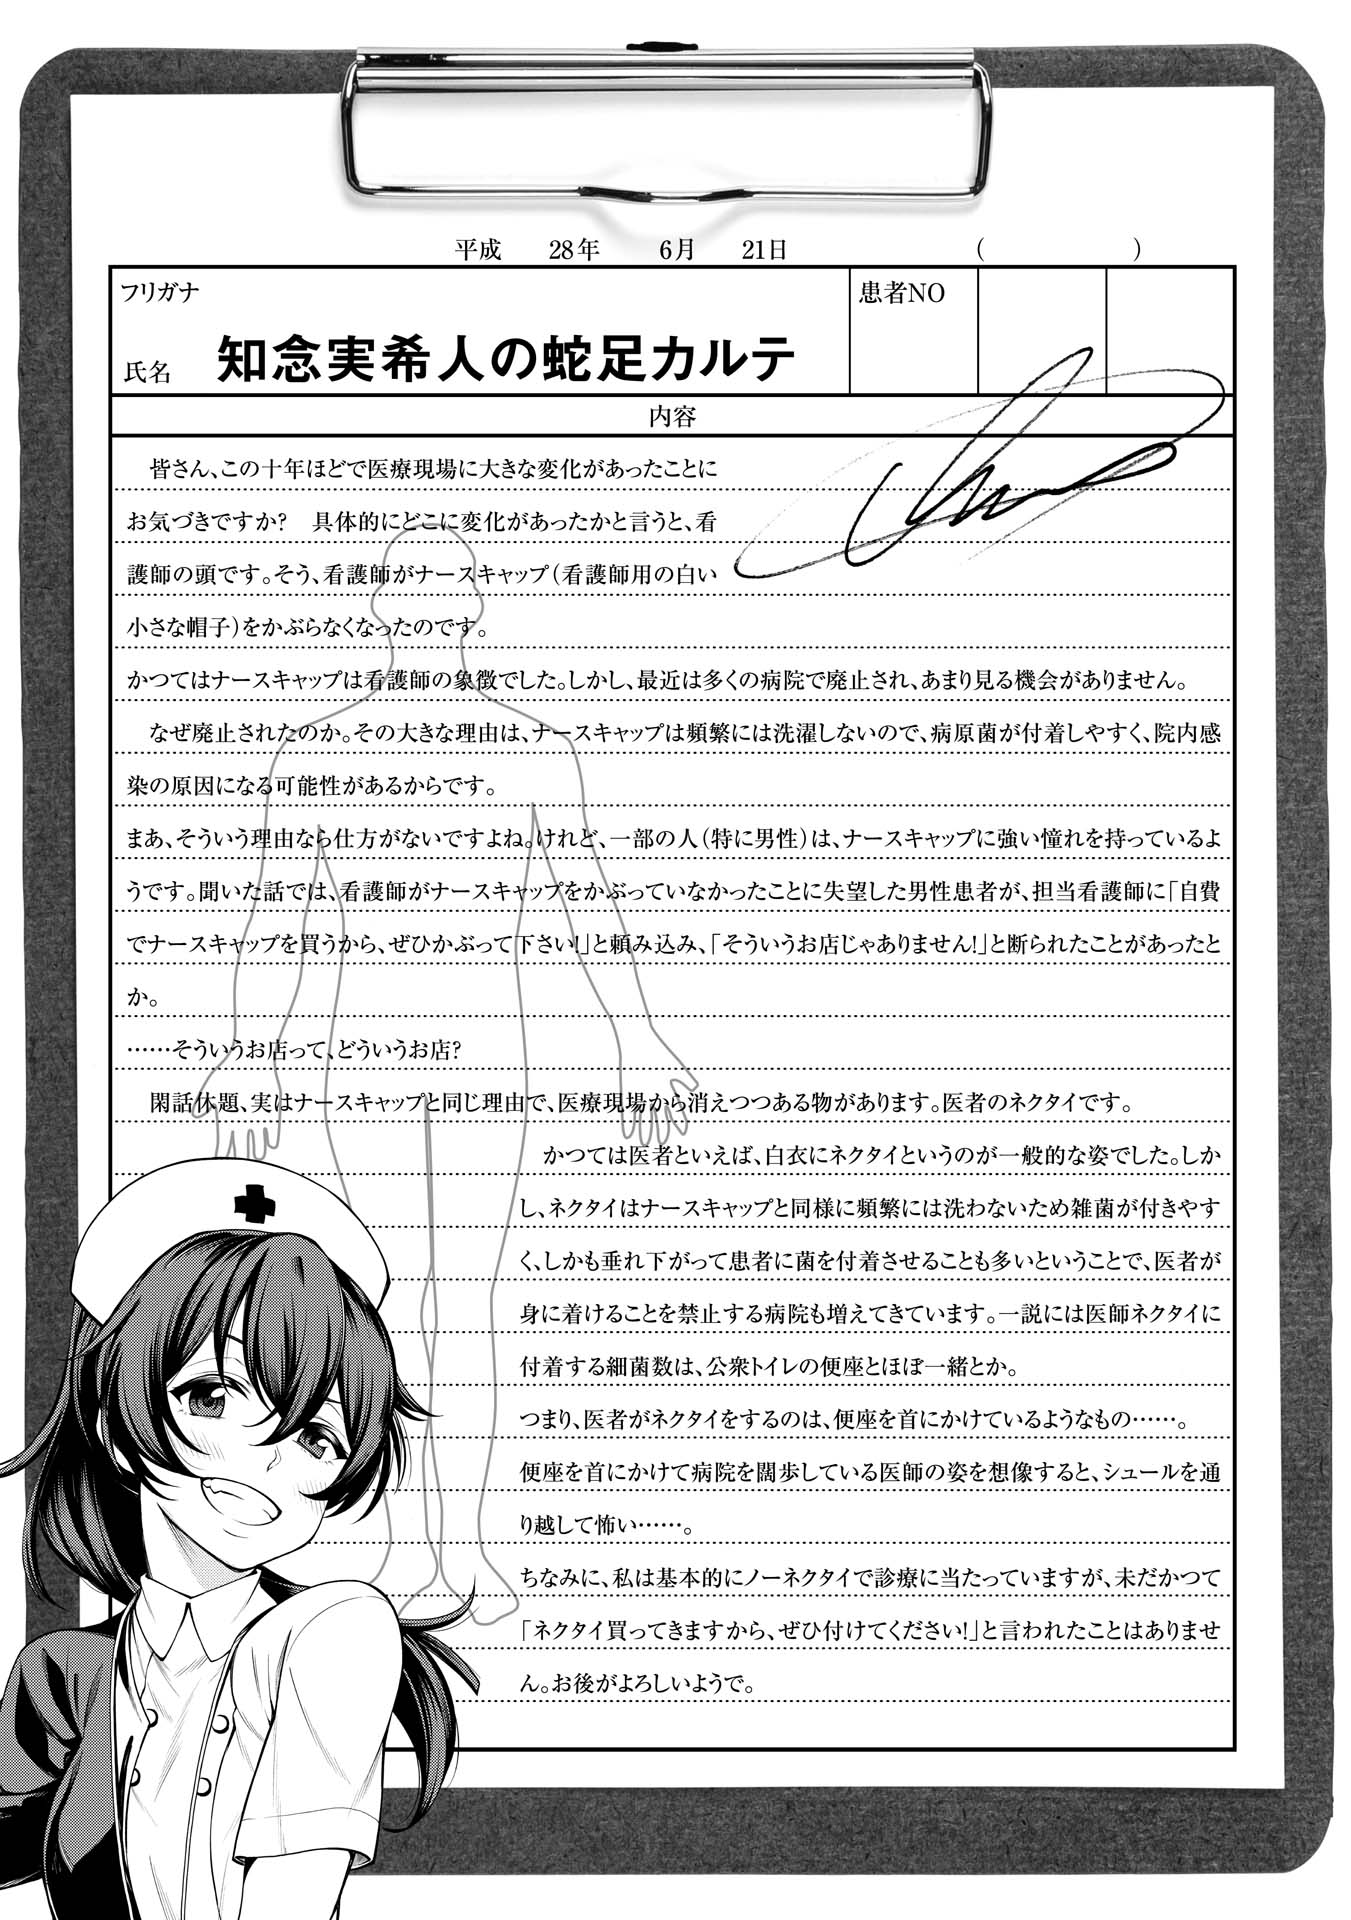 平成 28年 6月 21日 ( )
フリガナ
患者NO
氏名 知念実希人の蛇足カルテ
内容
皆さん、この十年ほどで医療現場に大きな変化があったことに
お気づきですか? 具体的にどこに変化があったかと言うと、看
護師の頭です。そう、看護師がナースキャップ(看護師用の白い
小さな帽子)をかぶらなくなったのです。
かつてはナースキャップは看護師の象徴でした。しかし、最近は多くの病院で廃止され、あまり見る機会がありません。
なぜ廃止されたのか。その大きな理由は、ナースキャップは頻繁には洗濯しないので、病原菌が付着しやすく、院内感
染の原因になる可能性があるからです。
まあ、そういう理由なら仕方がないですよね。けれど、一部の人(特に男性)は、ナースキャップに強い憧れを持っているよ
うです。聞いた話では、看護師がナースキャップをかぶっていなかったことに失望した男性患者が、担当看護師に「自費
でナースキャップを買うから、ぜひかぶって下さい!」と頼み込み、「そういうお店じゃありません!」と断られたことがあったと
か。
……そういうお店って、どういうお店?
閑話休題、実はナースキャップと同じ理由で、医療現場から消えつつある物があります。医者のネクタイです。
かつては医者といえば、白衣にネクタイというのが一般的な姿でした。しか
し、ネクタイはナースキャップと同様に頻繁には洗わないため雑菌が付きやす
く、しかも垂れ下がって患者に菌を付着させることも多いということで、医者が
身に着けることを禁止する病院も増えてきています。一説には医師ネクタイに
付着する細菌数は、公衆トイレの便座とほぼ一緒とか。
つまり、医者がネクタイをするのは、便座を首にかけているようなもの……。
便座を首にかけて病院を闊歩している医師の姿を想像すると、シュールを通
り越して怖い……。
ちなみに、私は基本的にノーネクタイで診療に当たっていますが、未だかつて
「ネクタイ買ってきますから、ぜひ付けてください!」と言われたことはありませ
ん。お後がよろしいようで。